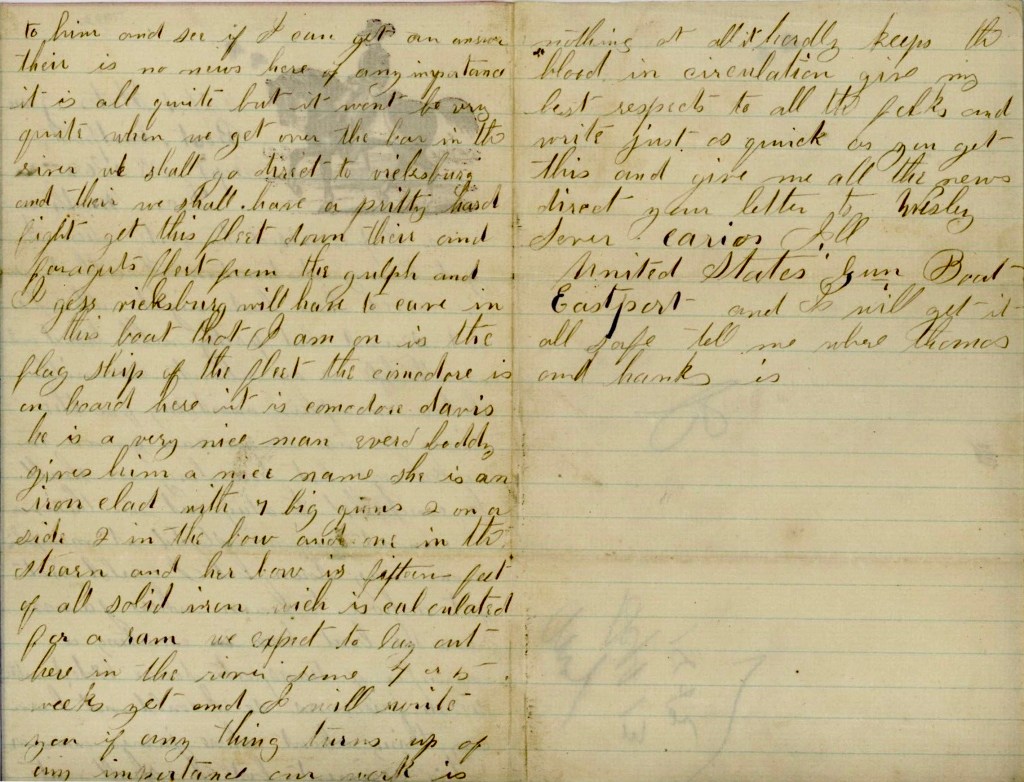 to him and see if I can get an answer
their is no news here of any importance
it is all quite but it wont be very
quite when we get over the bar in the
river we shall go direct to vicksburg
and their we shall have a pritty hard
fight get this fleet down their and
faraguts fleet from the gulph and
I gess vicksburg will have to cave in
this boat that I am on is the
flag ship of the fleet the comodore is
on board here it is comodore davis
he is a very nice man everd boddy
gives him a nice name she is an
iron clad with 7 big guns 2 on a
side 2 in the bow and one in the
stearn and her bow is fifteen feet
of all solid iron wich is calculated
for a ram we expect to lay out
here in the river some 4 or 5
weeks yet and I will write
you if any thing turns up of
any importance our work is
nothing at all it herdly keeps the
blood in circulation give my
best respects to all the folks and
write just as quick as you get
this and give me all the news
direct your letter to Wesley
Sever carios Ill
United States Gun Boat
Eastport and I will get it
all safe tell me where thomas
and hanks is